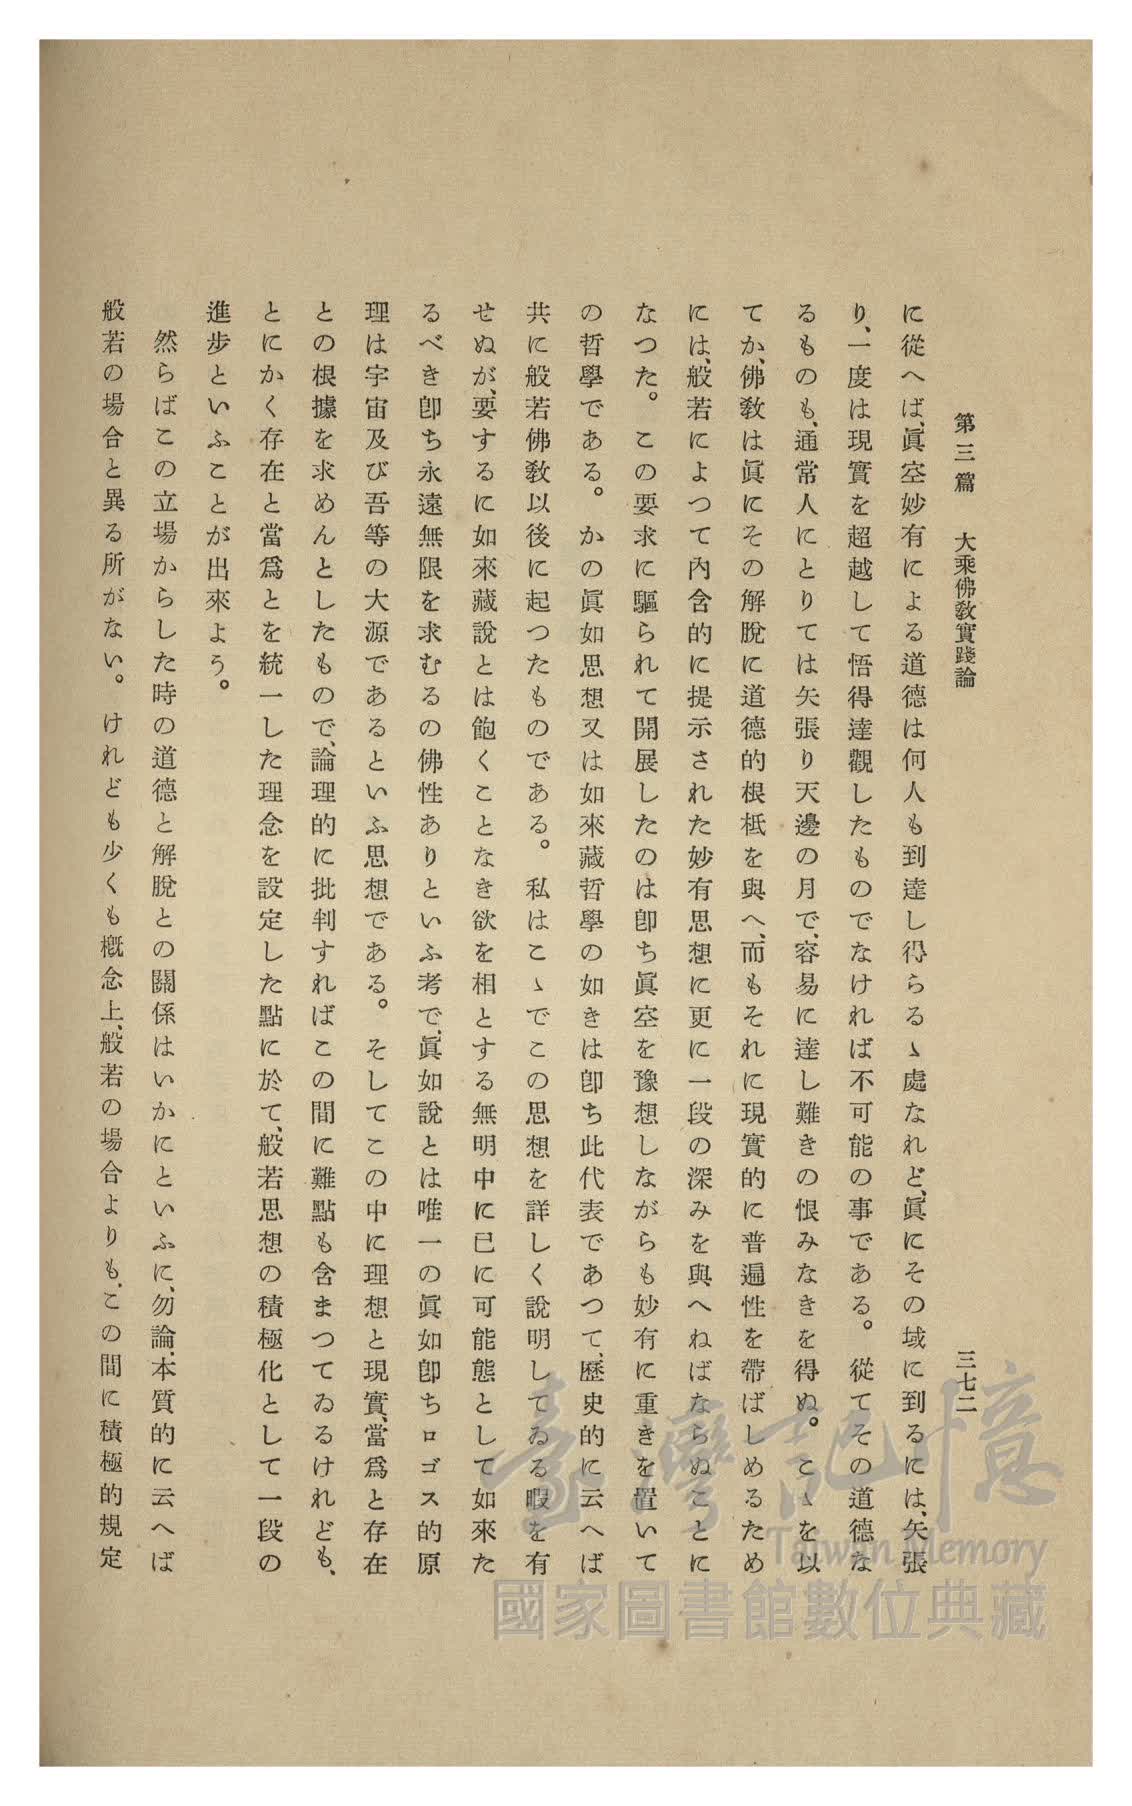 第三篇　大乘佛敎實踐論　三七二
に從へば、眞空妙有による道德は何人も到達し得らるゝ處なれど、眞にその域に到るには、矢張
り、一度は現實を超越して悟得達觀したものでなければ不可能の事である。從てその道德な
るものも、通常人にとりては矢張り天邊の月で、容易に達し難きの恨みなきを得ぬ。こゝを以
てか、佛敎は眞にその解脫に道德的根柢を與へ、而もそれに現實的に普遍性を帶ばしめるため
には、般若によつて內含的に提示された妙有思想に更に一段の深みを與へねばならぬことに
なつた。この要求に驅られて開展したのは卽ち眞空を豫想しながらも妙有に重きを置いて
の哲學である。かの眞如思想又は如來藏哲學の如きは卽ち此代表であつて、歷史的に云へば
共に般若佛敎以後に起つたものである。私はこゝでこの思想を詳しく說明してゐる暇を有
せぬが、要するに如來藏說とは飽くことなき欲を相とする無明中に已に可能態として如來た
るべき卽ち永遠無限を求むるの佛性ありといふ考で、眞如說とは唯一の眞如卽ちロゴス的原
理は宇宙及び吾等の大源であるといふ思想である。そしてこの中に理想と現實、當爲と存在
との根據を求めんとしたもので、論理的に批判すればこの間に難點も含まつてゐるけれども、
とにかく存在と當爲とを統一した理念を設定した點に於て、般若思想の積極化として一段の
進步といふことが出來よう。
然らばこの立場からした時の道德と解脫との關係はいかにといふに、勿論、本質的に云へば
般若の場合と異る所がない。けれども少くも槪念上、般若の場合よりも、この間に積極的規定
臺灣記憶
Taiwan Memory
國家圖書館數位典藏